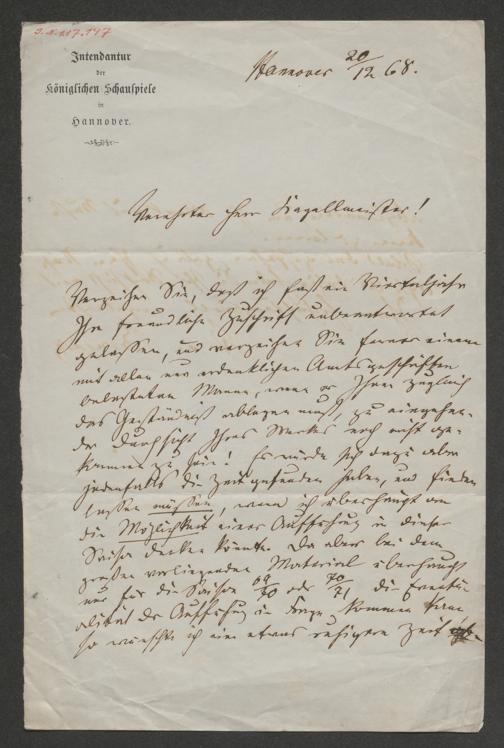 I.N. 117.147
Intendantur
der
Königlichen Schauspiele
in
Hannover.
Hannover 20/12 68.
Verehrter Herr Kapellmeister!
Verzeihen Sie, daß ich fast ein Vierteljahr
Ihre freundliche Zuschrift unbeantwortet
gelassen, und verzeihen Sie ferner einem
mit allen nur erdenklichen Amtsgeschäften
belasteten Manne, wenn er Ihnen zugleich
das Geständniß ablegen muß, zu eingehen-
der Durchsicht Ihres Werkes noch nicht ge-
kommen zu sein! Es würde sich dazu aber
jedenfalls die Zeit gefunden haben, und finden
lassen müssen, wenn ich überhaupt an
die Möglichkeit einer Aufführung in dieser
Saison denken könnte. Da aber bei dem
großen vorliegenden Material überhaupt
nur für die Saison 69/70 oder 70/71 die Eventu-
alität der Aufführung in Frage kommen kann
so wünschte ich eine etwas ruhigere Zeit